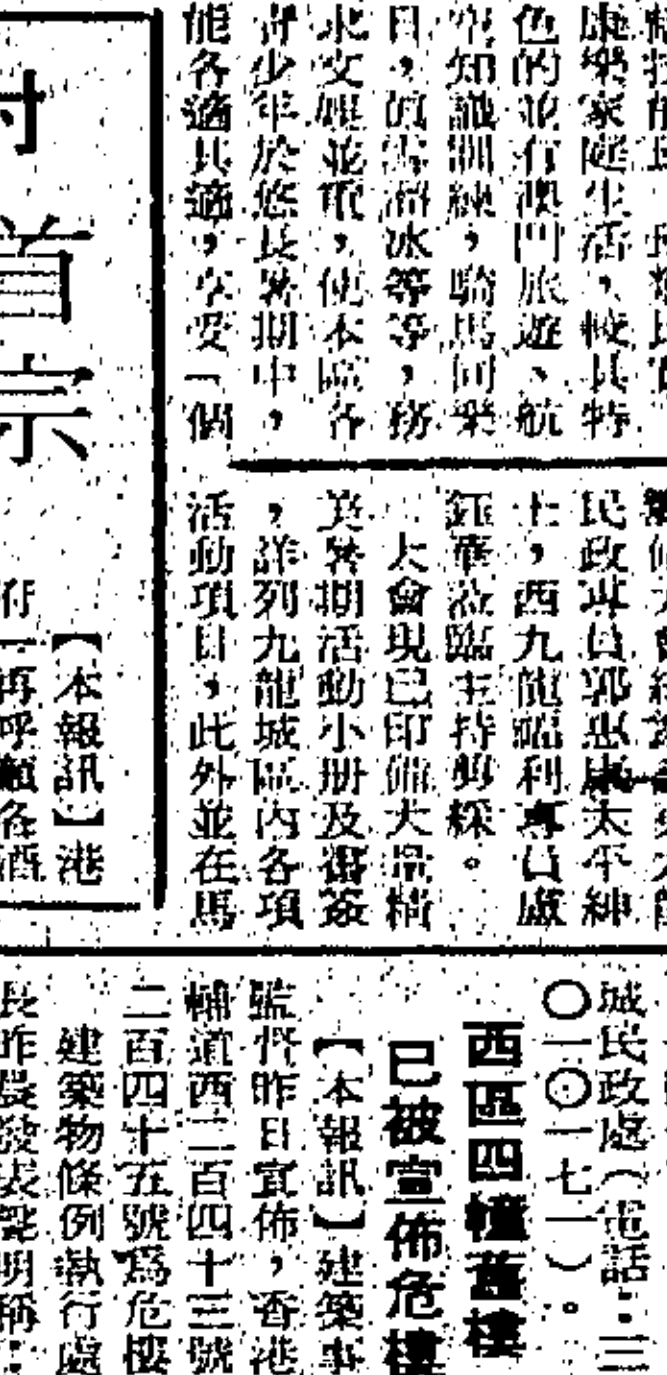 康樂家庭生活，較具特
色的並有澳門旅遊、航
空知識訓練，騎馬同樂
日，眞雪溜冰等等，務
求文娛並重，使本區各
靑少年於悠長暑期中，
能各適其適，享受「個
民政專員郭惠康太平紳
士，西九龍福利專員盧
鈺華蒞臨主持剪綵。
大會現已印備大量精
美暑期活動小册及書簽
，詳列九龍城區內各項
活動項目，此外並在馬
首宗
【本報訊】港
府一再呼籲各酒
城民政處（電話：三
〇一〇一七一）。
西區四幢舊樓
已被宣佈危樓
【本報訊】建築事
監督昨日宣佈，香港
輔道西二百四十三號
二百四十五號爲危樓
建築物條例執行處
長昨晨發表聲明稱：